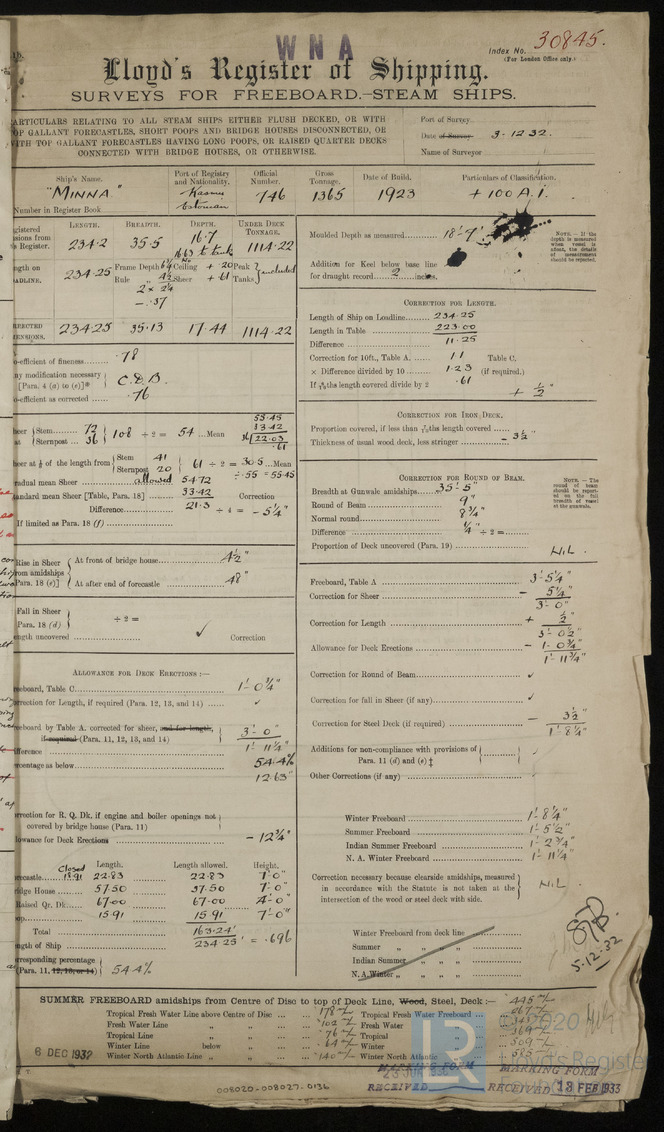 WNA
Index No. 30845.
(For London Office only.)
Lloyd's Register of Shipping.
SURVEYS FOR FREEBOARD.—STEAM SHIPS.
ARTICULARS RELATING TO ALL STEAM SHIPS EITHER FLUSH DECKED, OR WITH
OP GALLANT FORECASTLES, SHORT POOPS AND BRIDGE HOUSES DISCONNECTED, OR
WITH TOP GALLANT FORECASTLES HAVING LONG POOPS, OR RAISED QUARTER DECKS
CONNECTED WITH BRIDGE HOUSES, OR OTHERWISE.
Port of Survey
Date of Survey 3.12.32.
Name of Surveyor
Ship's Name. Port of Registry and Nationality. Official Number. Gross Tonnage. Date of Build. Particulars of Classification.
"MINNA" Kasmu Estonian 746 1365 1923 +100 A.1.
Number in Register Book
LENGTH. BREADTH. DEPTH. UNDER DECK TONNAGE.
egistered
sions from
s Register.
234.2 35.5 16.7 1114.22
1663 to tank
ngth on
OADLINE. 234.25 Frame Depth Ceiling + .20 Peak
Rule Sheer + .61 Tanks included
- .37
RRECTED
ENSIONS. 234.25 35.13 17.44 1114.22
o-efficient of fineness .78
ny modification necessary
[Para. 4 (a) to (e)]* C.D.B.
o-efficient as corrected .76
heer Stem 72
at Sternpost 36 108 ÷ 2 = 54 Mean
55.45
33.42
36 22.03
.61
heer at 1/8 of the length from Stem 41
Sternpost 20 61 ÷ 2 = 30.5 Mean
÷.55 = 55.45
radual mean Sheer allowed 54.72
tandard mean Sheer [Table, Para. 18] 33.42 Correction
Difference 21.3 ÷ 4 = - 5¼"
If limited as Para. 18 (f)
Rise in Sheer
rom amidships
Para. 18 (e)]
At front of bridge house 4½"
At after end of forecastle 48"
Fall in Sheer
Para. 18 (d)
ength uncovered
÷ 2 = ✓ Correction
ALLOWANCE FOR DECK ERECTIONS :—
reeboard, Table C. 1'-0¼"
orrection for Length, if required (Para. 12, 13, and 14) ✓
reeboard by Table A. corrected for sheer, and for length,
if required (Para. 11, 12, 13, and 14) 3'-0"
ifference 1'-11¼"
rcentage as below 54.4%
12.63"
orrection for R. Q. Dk. if engine and boiler openings not
covered by bridge house (Para. 11)
lowance for Deck Erections - 12¾"
Length. Length allowed. Height.
Closed
recastle 13.91 22.83 22.83 7'-0"
ridge House 57.50 57.50 7'-0"
Raised Qr. Dk. 67.00 67.00 4'-0"
op 15.91 15.91 7'-0"
Total 163.24'
ngth of Ship 234.25' = .696
rresponding percentage
(Para. 11, 12, 13, or 14) 54.4%
Moulded Depth as measured 18'-7"
Addition for Keel below base line
for draught record 2 inches.
NOTE.—If the depth is measured when vessel is afloat, the details of measurement should be reported.
CORRECTION FOR LENGTH.
Length of Ship on Loadline 234.25
Length in Table 223.00
Difference 11.25
Correction for 10ft., Table A. 1.1 Table C.
× Difference divided by 10 1.23 (if required.)
If 6/10ths length covered divide by 2 .61
+ ½"
CORRECTION FOR IRON DECK.
Proportion covered, if less than 7/10ths length covered
Thickness of usual wood deck, less stringer - 3½"
CORRECTION FOR ROUND OF BEAM.
Breadth at Gunwale amidships 35'-5"
Round of Beam 9"
Normal round 8¾"
Difference ¼" ÷ 2 =
Proportion of Deck uncovered (Para. 19)
NIL.
NOTE.—The round of beam should be reported on the full breadth of vessel at the gunwale.
Freeboard, Table A 3'-5¼"
Correction for Sheer - 5¼"
3'-0"
Correction for Length + ½"
3'-0½"
Allowance for Deck Erections - 1'-0¾"
1'-11¾"
Correction for Round of Beam ✓
Correction for fall in Sheer (if any) ✓
Correction for Steel Deck (if required) - 3½"
1'-8¼"
Additions for non-compliance with provisions of
Para. 11 (d) and (e) ‡
Other Corrections (if any)
Winter Freeboard 1'-8¼"
Summer Freeboard 1'-5½"
Indian Summer Freeboard 1'-2¾"
N. A. Winter Freeboard 1'-11¼"
Correction necessary because clearside amidships, measured
in accordance with the Statute is not taken at the
intersection of the wood or steel deck with side.
NIL.
Winter Freeboard from deck line
Summer " " "
Indian Summer " " "
N. A. Winter " " "
5.12.32
SUMMER FREEBOARD amidships from Centre of Disc to top of Deck Line, Wood, Steel, Deck :—
Tropical Fresh Water Line above Centre of Disc Tropical Fresh Water Freeboard
Fresh Water Line " " Fresh Water "
Tropical Line " " Tropical "
Winter Line below " Winter "
Winter North Atlantic Line " " Winter North Atlantic "
6 DEC 1932
MARKING FORM
RECEIVED
MARKING FORM
RECEIVED 13 FEB 1933
008020-008027-0136
© 2020
LR
Lloyd's Register